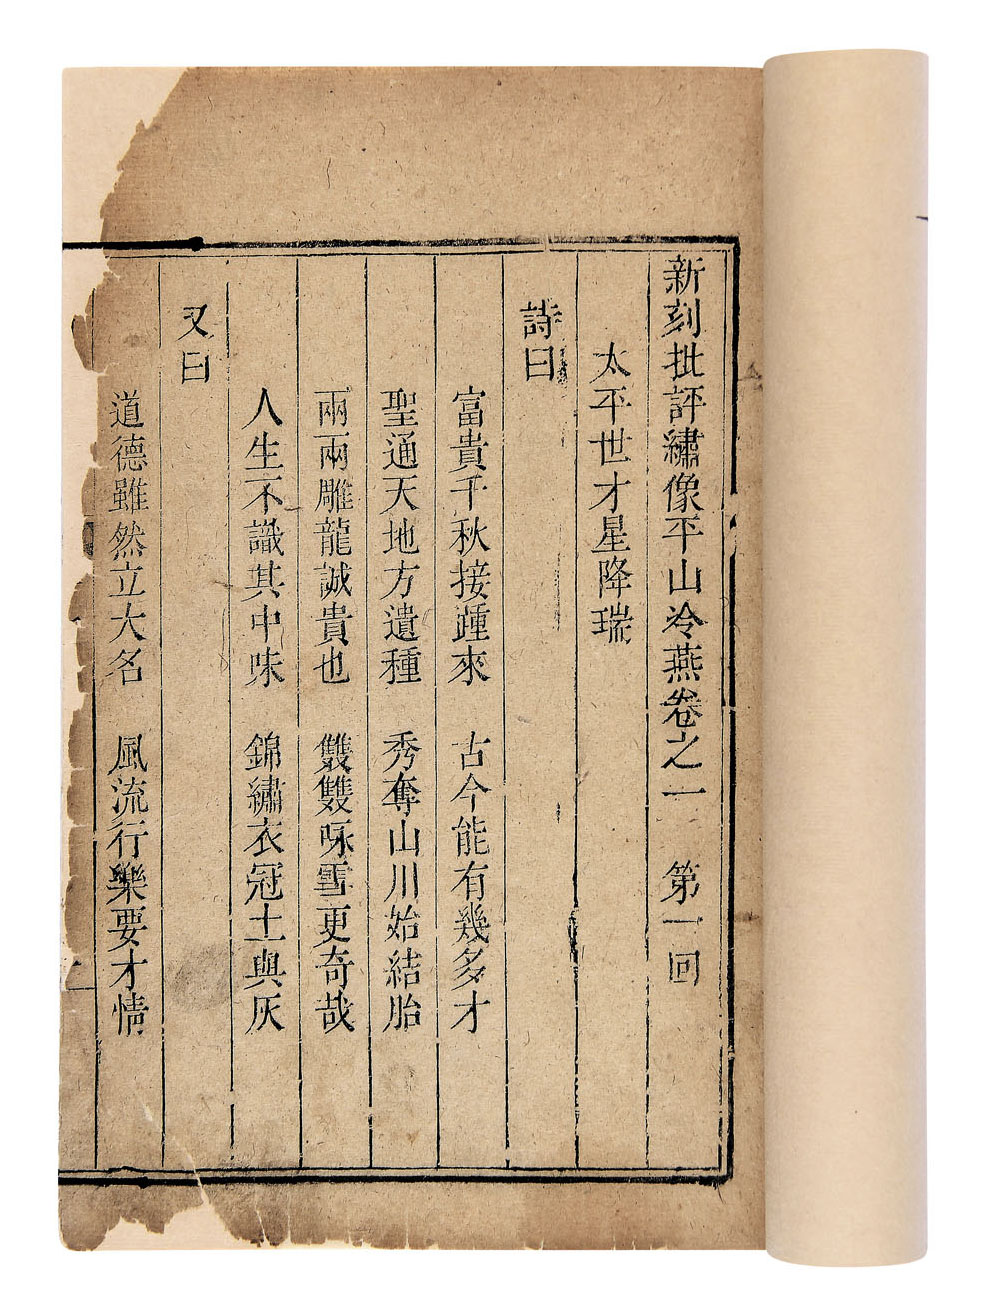 新刻批評繡像平山冷燕卷之一　第一回
太平世才星降瑞
詩曰
富貴千秋接踵來　古今能有幾多才
聖通天地方遺種　秀奪山川始結胎
兩兩雕龍誠貴也　雙雙咏雪更奇哉
人生不識其中味　錦繡衣冠土與灰
又曰
道德雖然立大名　風流行樂要才情